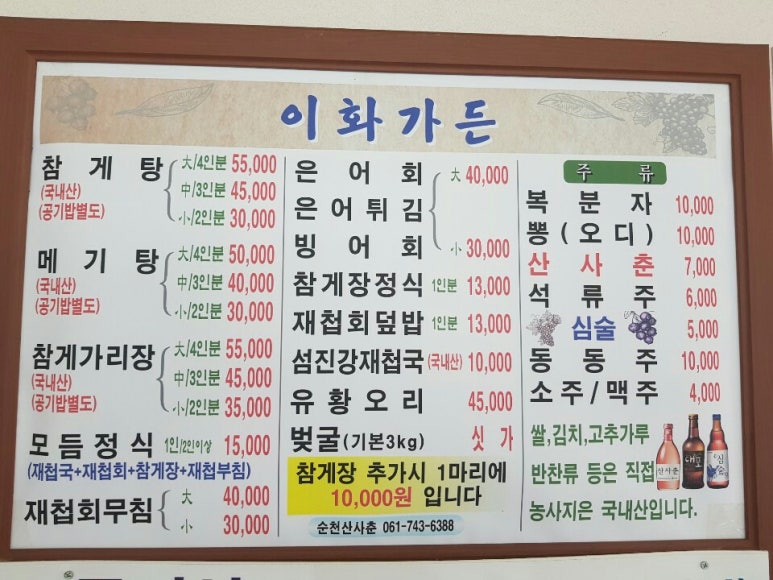 이화가든
참게탕 大/4인분 55,000
(국내산) 中/3인분 45,000
(공기밥별도) 小/2인분 30,000
메기탕 大/4인분 50,000
(국내산) 中/3인분 40,000
(공기밥별도) 小/2인분 30,000
참게가리장 大/4인분 55,000
(국내산) 中/3인분 45,000
(공기밥별도) 小/2인분 35,000
모듬정식 1인/2인이상 15,000
(재첩국+재첩회+참게장+재첩부침)
재첩회무침 大 40,000
小 30,000
은어회 大 40,000
은어튀김
빙어회 小 30,000
참게장정식 1인분 13,000
재첩회덮밥 1인분 13,000
섬진강재첩국(국내산) 10,000
유황오리 45,000
벚굴(기본3kg) 싯가
참게장 추가시 1마리에
10,000원 입니다
순천산사춘 061-743-6388
주류
복분자 10,000
뽕(오디) 10,000
산사춘 7,000
석류주 6,000
심술 5,000
동동주 10,000
소주/맥주 4,000
쌀,김치,고추가루
반찬류 등은 직접
농사지은 국내산입니다.
산사춘
대포
심술